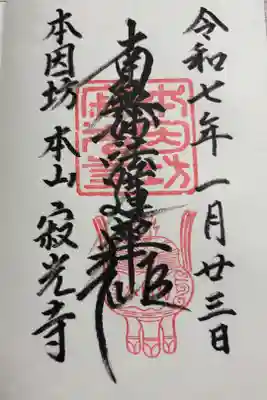 令和七年 一月廿三日
南無妙法蓮華経
本因坊 本山 寂光寺